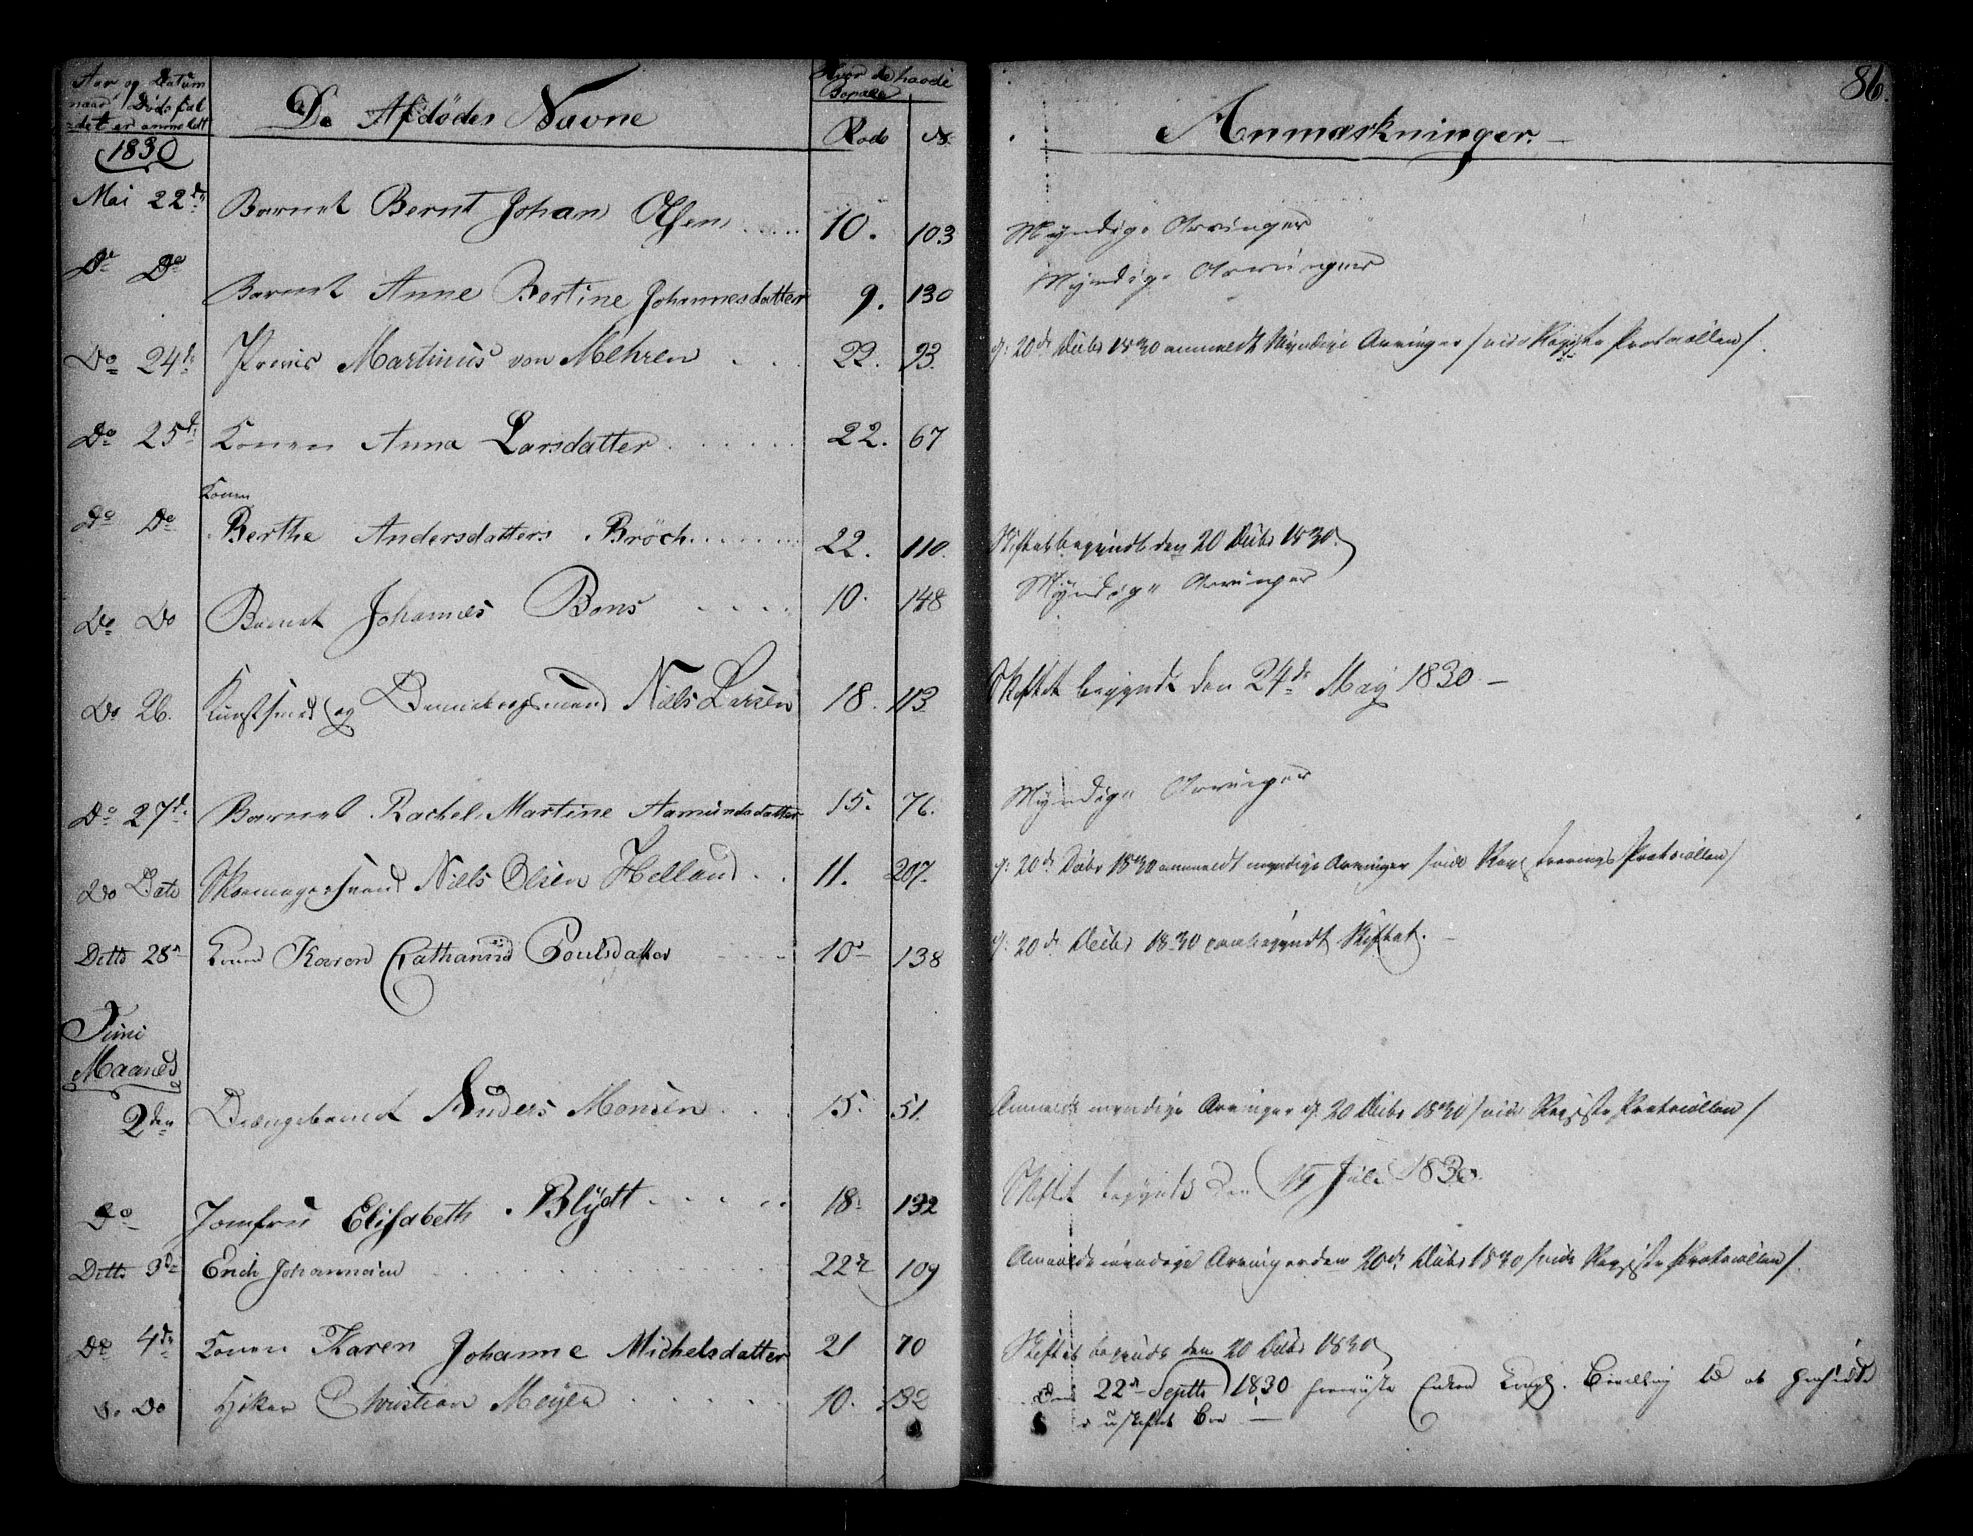 Aar og Datum
naar Dødsfal
det er anmeldt
De Afdødes Navne
Hvor de havde
Bopæl
Rode No
86.
Anmærkninger.
1830
Mai 22de Barnet Bernt Johan Olsen 10. 103 Myndige Arvinger
Do Do Barnet Anne Bertine Johannesdatter 9. 130 Myndige Arvinger
Do 24de Martinus von Mehren 22. 93. 20de Decbr 1830 anmeldt Myndige Arvinger / vide Registr Protocollen /.
Do 25de Konen Anna Larsdatter 22. 67
Konen
Do Do Berthe Andersdatters Bröch 22. 110. Skiftet begyndt den 20 Decbr 1830
Do Do Barnet Johannes Bons 10. 148 Myndige Arvinger
Do 26. Kunstsmed og Dannebrogsmand Niels Larsen 18. 113 Skiftet begyndt den 24de May 1830 –
Do 27de Barnet Rachel Martine Aamundsdatter 15. 76. Myndige Arvinger
Do Dito Skomagersvend Niels Olsen Helland 11. 207. 20de Decbr 1830 anmeldt myndige Arvinger / vide Registrerings Protocollen /
Ditto 28de Konen Karen Cathrine Poulsdatter 10 138 20de Decbr 1830 paabegyndt Skiftet.
Juni
Maaned
2den Drengebarnet Anders Monsen 15. 51. Anmeldt myndige Arvinger 20 Decbr 1830 / vide Registr Protocollen /
Do Jomfru Elisabeth Blydt 18. 132 Skiftet begyndt den 19 Juli 1830.
Ditto 3de Erich Johannesen 22de 109 Anmeldt myndige Arvinger den 20de Decbr 1830 / vide Registr Protocollen /.
Do 4de Konen Karen Johanne Michelsdatter 21 70 Skiftet begyndt den 20 Decbr 1830
Do Do Høker Christian Meyer 10. 132 Den 22de Septbr 1830 Enken Kongl. Bevilling til at hensidde
i uskiftet Boe –